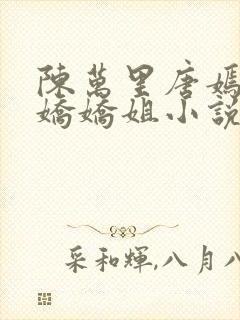 陳萬里唐嫣
嬌嬌姐小說
采和輝,八月八